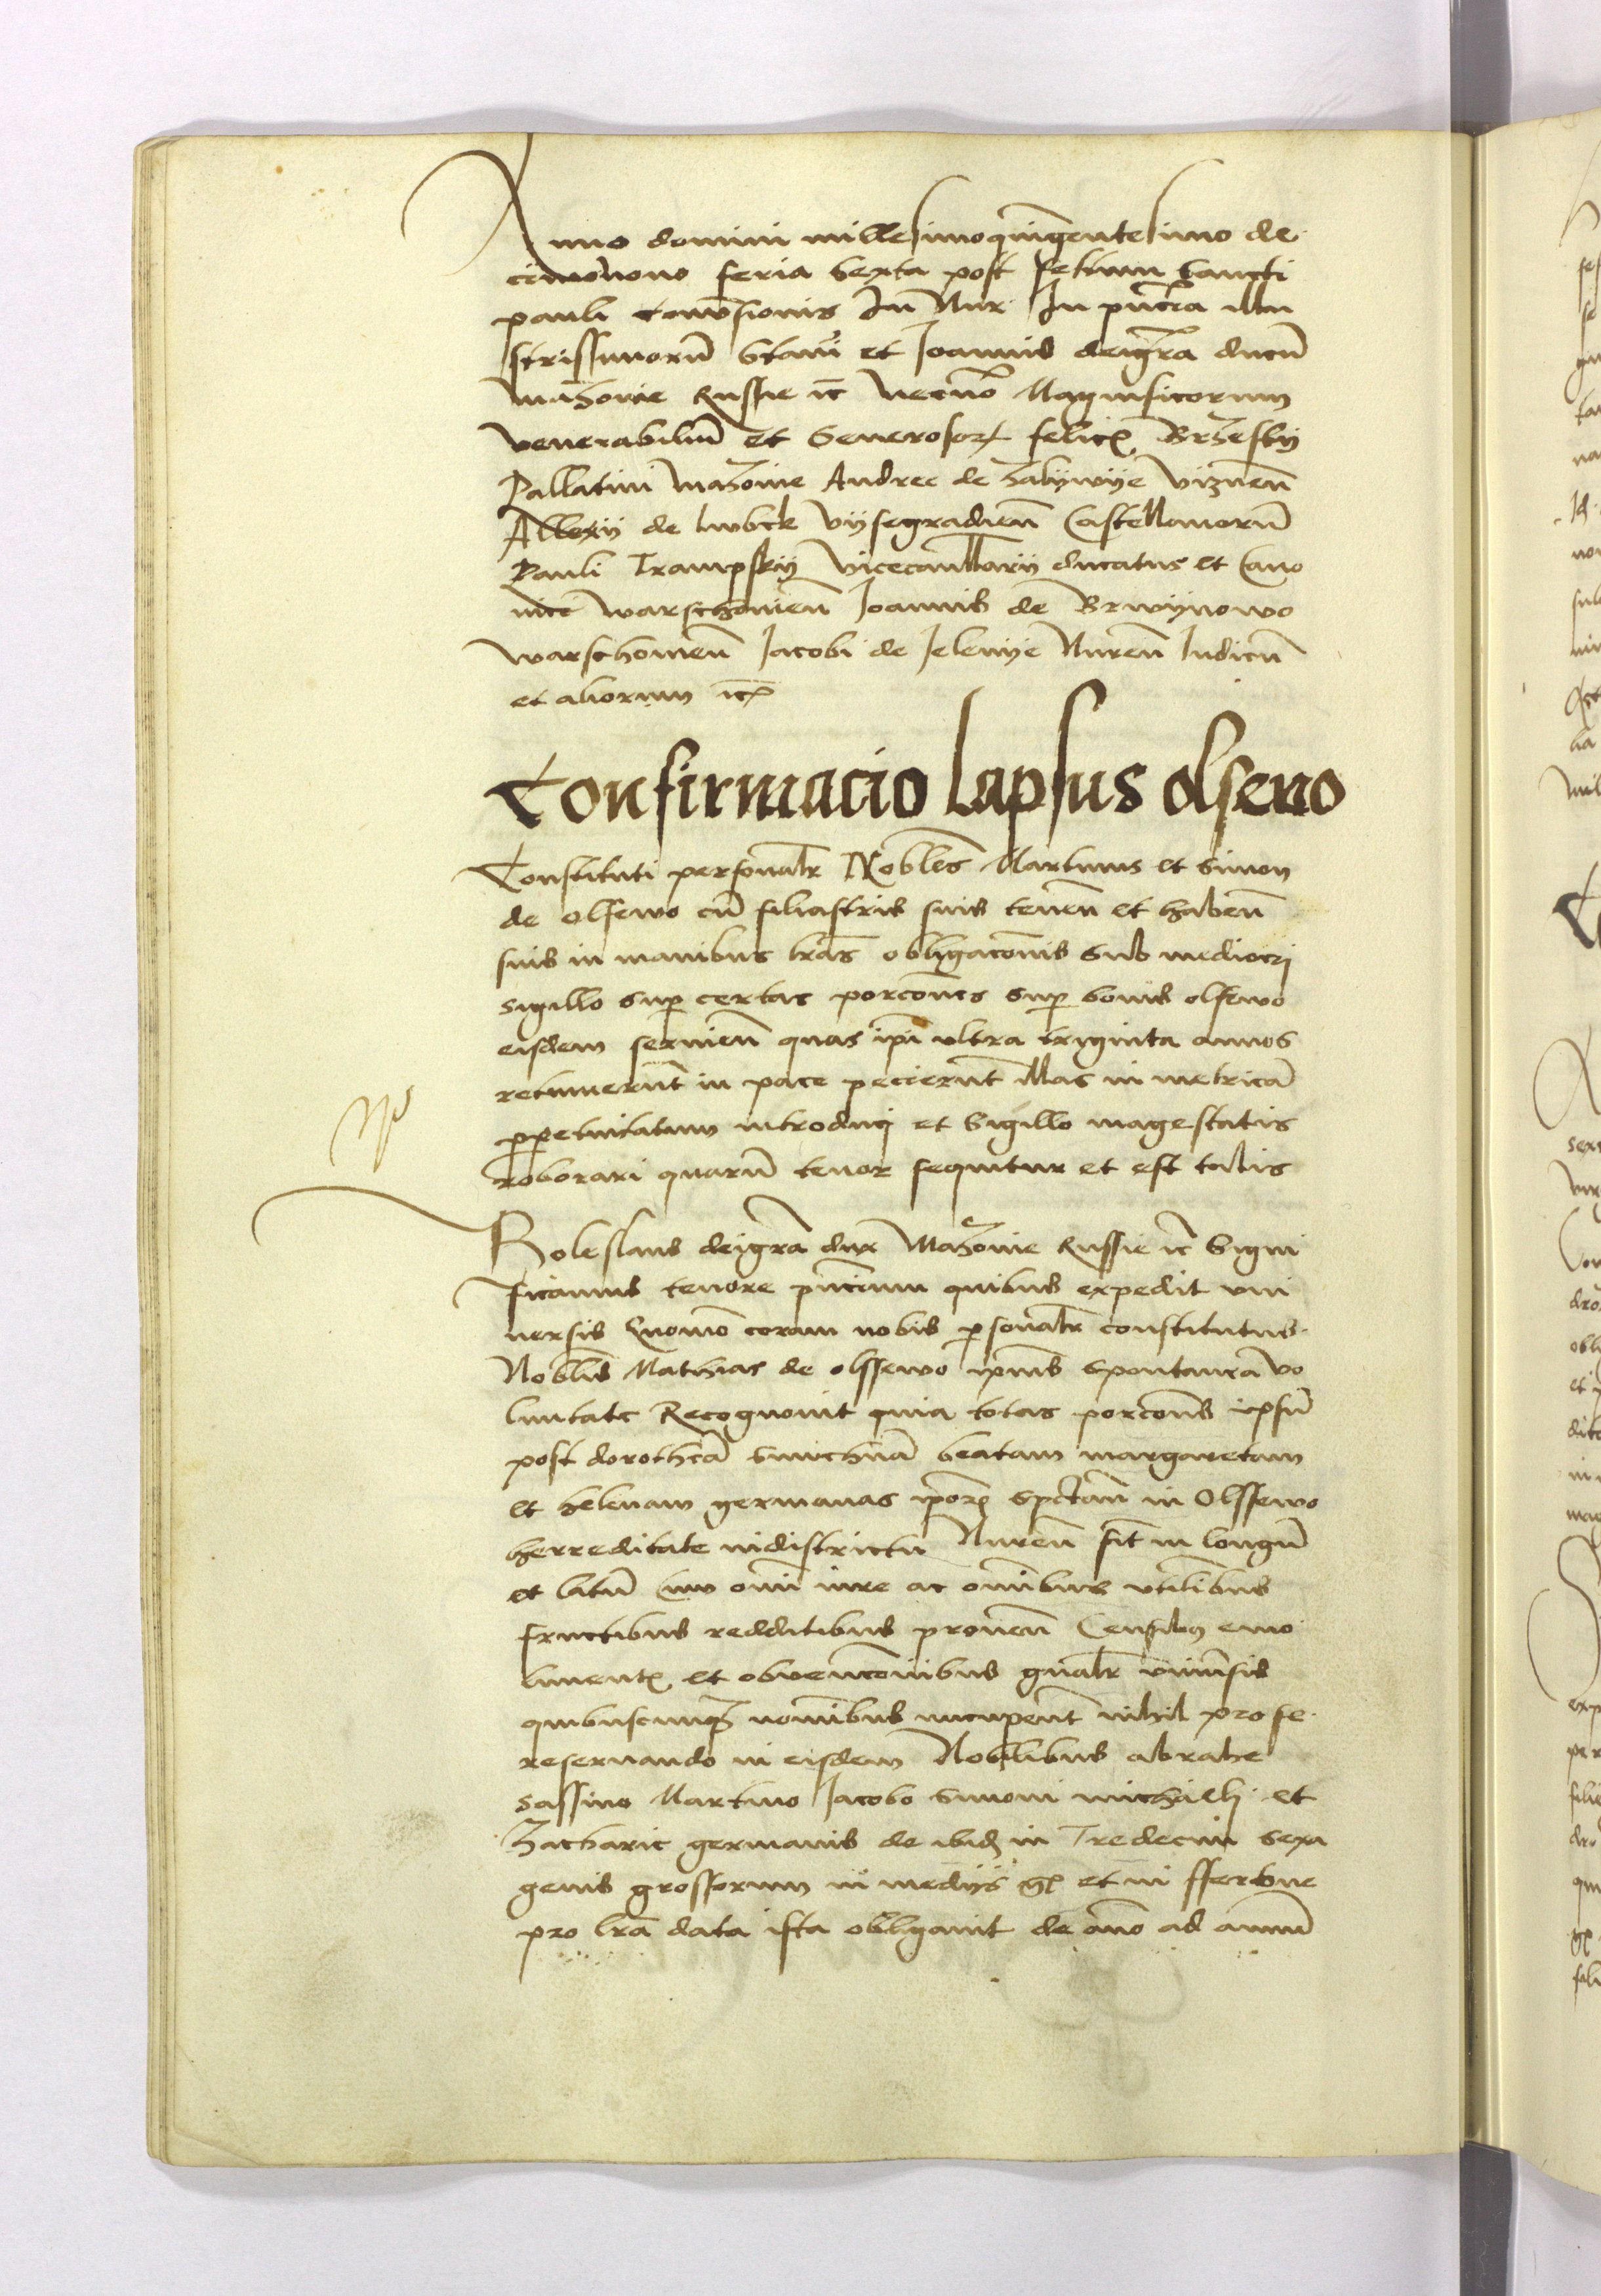 Anno domini millesimoquingentesimo de
cimonono feria sexta post festum sancti
pauli conv̄sionis In Nur In pn̄cia illu
strissimorū Stani et Joannis deigr̄a ducū
Mazovie Russie ic̄ necnō Magnificorum
venerabiliū et Generosor felicis Brzesky
Pallatini mazovie Andree de Zalywye vizneñ
Allexij de lubck vysegradieñ Castellanorū
Pauli Trampsky vicecancellarij ducatus et Cano
nici warschovieñ Joannis de Brwynowo
warschovieñ Jacobi de Jelenije Nureñ Iudicū
et aliorum ic̄
Confirmacio lapsus olsewo
Constituti personalr Nobles Martinus et Simon
de olsewo cū filiastris suis teneñ et habeñ
suis in manibus lr̄as obligacōnis sub mediocri
sigillo sup certas porcōnes sup bonis olsewo
eisdem servieñ quas ip̄i ultra triginta annos
retinuerūt in pace pecierūt illas in metricā
ppetuitatum introduci et sigillo magestatis
roborari quarū tenor sequitur et est talis
Boleslaus deigr̄a dux Mazovie Russie ic̄ Signi
ficamus tenore pn̄cium quibus expedit vni
versis Quomō coram nobis psonalr constitutus
Noblis Mathias de olssewo ip̄ius spontanea vo
luntate Recognovit quia totas porcōnes ipsū
post dorotheā smichnā beatam margaretam
et helenam germanas ip̄or spctañ in Olssewo
herreditate indistrictu Nureñ sit̄ in longū
et latū Cum om̄i iure ac om̄ibus vtilibus
fructibus redditibus proveñ Censibus emo
limentis et obvencōnibus gn̄alr vniv̄sis
quibuscunq nom̄ibus nucupent nihil pro se
reservando in eisdem Nobilibus abrahe
sassino Martino Jacobo simoni michaeli et
Zacharie germanis de ibid in Tredecim sexa
genis grossorum in medijs gr et in ffertone
pro lr̄a data ista obligavit de anō ad annū